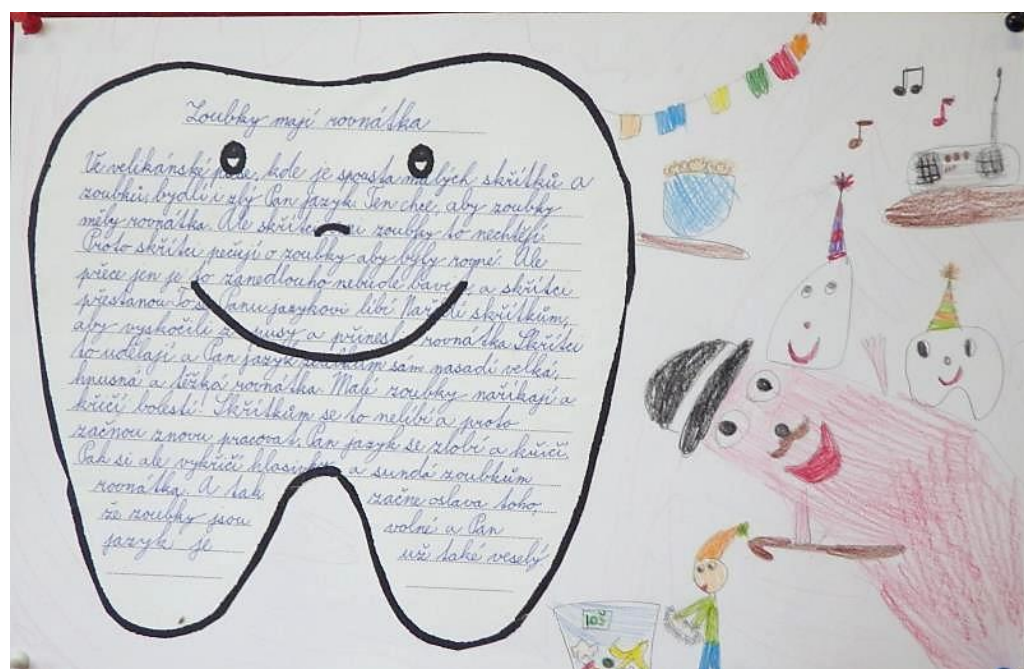 Zoubky mají rovnátka
Ve velikánské puse, kde je spousta malých skřítků a
zoubků, bydlí i zlý Pan jazyk. Ten chce, aby zoubky
měly rovnátka. Ale skřítci ani zoubky to nechtějí.
Proto skřítci pečují o zoubky aby byly rovné. Ale
přece jen je to zanedlouho nebude bavit a skřítci
přestanou. To se Panu jazykovi líbí. Nařídí skřítkům,
aby vyskočili z pusy a přinesli rovnátka. Skřítci
to udělají a Pan jazyk zoubkům sám nasadí velká,
hnusná a těžká rovnátka. Malé zoubky naříkají a
křičí bolestí. Skřítkům se to nelíbí a proto
začnou znovu pracovat. Pan jazyk se zlobí a křičí.
Pak si ale vykřičí hlasivky a sundá zoubkům
rovnátka. A tak začne oslava toho,
že zoubky jsou volné a Pan
jazyk je už také veselý.